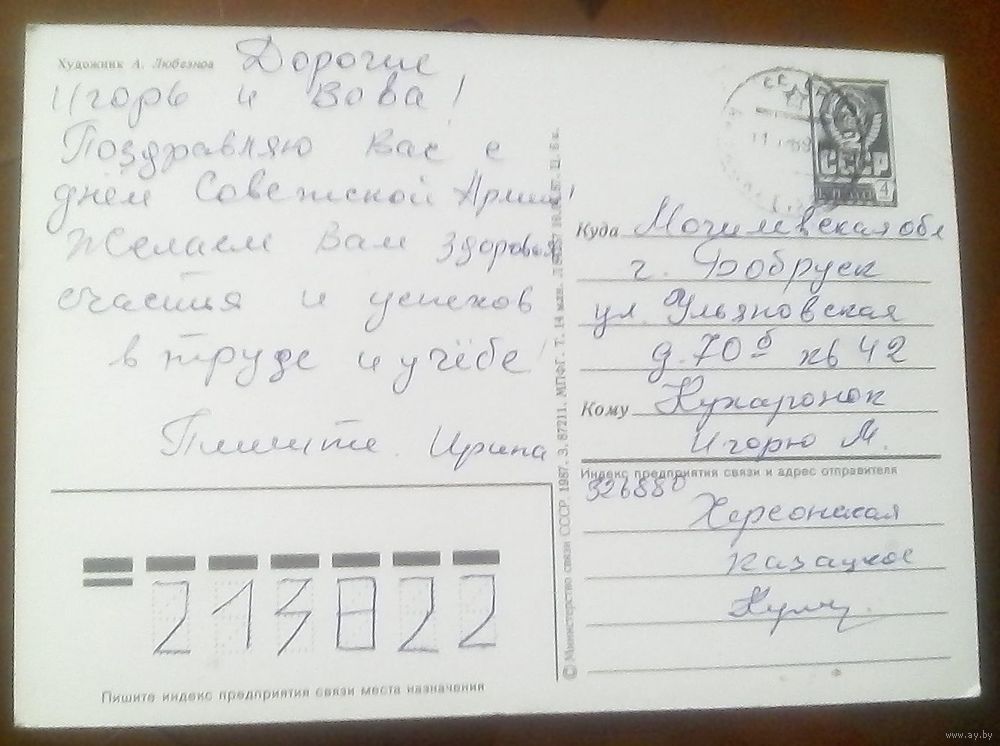 Художник А. Любезнов
Дорогие
Игорь и Вова!
Поздравляю Вас с
днём Советской Армии!
Желаем Вам здоровья
счастия и успехов
в труде и учёбе!
Пишите. Ирина
СССР
4
Куда Могилевская обл
г. Бобруск
ул. Ульяновская
д. 70 б кв 42
Кому Кухаронок
Игорю М.
Индекс предприятия связи и адрес отправителя
326880
Херсонская
Казацкое
213822
Пишите индекс предприятия связи места назначения
© Министерство связи СССР. 1987. З. 87211. МПФГ. Т. 14 млн. Ц. 5 к.
www.ay.by